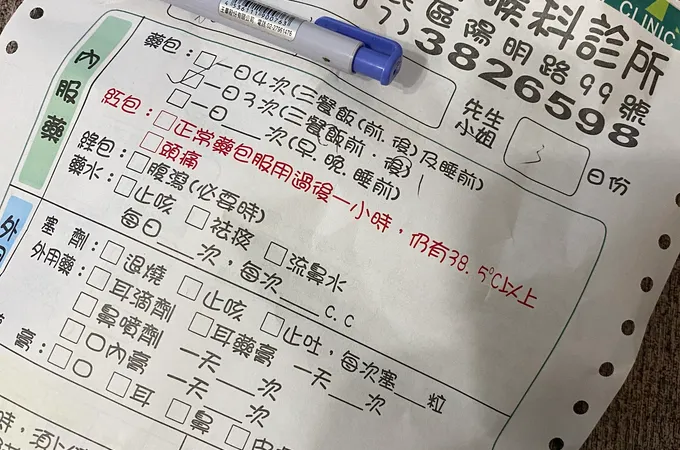 CLINIC
喉科診所
民區陽明路99號
07)3826598
先生
小姐
3
日份
內服藥
藥包：□一日4次(三餐飯(前.後)及睡前)
□一日3次(三餐飯前.後)
□一日___次(早.晚.睡前)
紅包：□正常藥包服用過後一小時，仍有38.5℃以上
□頭痛
綠包：□腹瀉(必要時)
藥水：□止咳 □祛痰 □流鼻水
每日___次，每次___c.c
外
塞劑：□退燒 □止咳 □止吐，每次塞___粒
外用藥：□耳滴劑 □耳藥膏 一天___次
□鼻噴劑 一天___次
□口內膏 一天___次
膏：□口 □耳 □鼻 □皮
時，須